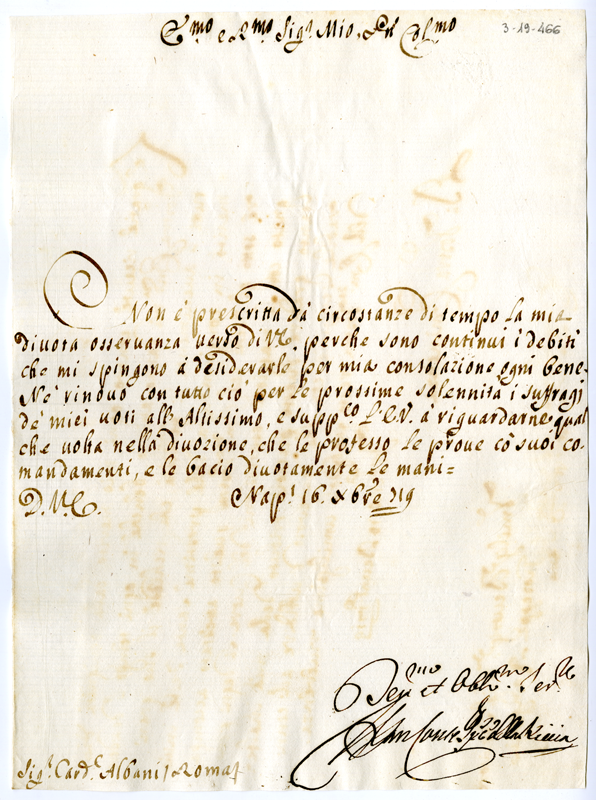 E.mo e R.mo Sig.r Mio, P.rn Col.mo
3-19-466
Non è prescritta dà circostanze di tempo la mia
divota osservanza verso di V.E. perche sono continui i debiti
che mi spingono à desiderarle per mia consolazione ogni bene.
Nè rinuovo con tutto ciò per le prossime solennità i suffragi
de miei voti all'Altissimo, e supp.co L'E.V. à riguardarne qual
che volta nella divozione, che le professo le prove cò suoi co-
mandamenti, e le bacio divotamente le mani=
D.V.E.
Nap.i 16 Xbre 719
Dev.mo et Obl.mo Ser.re
Sig.r Card.e Albani / Roma /